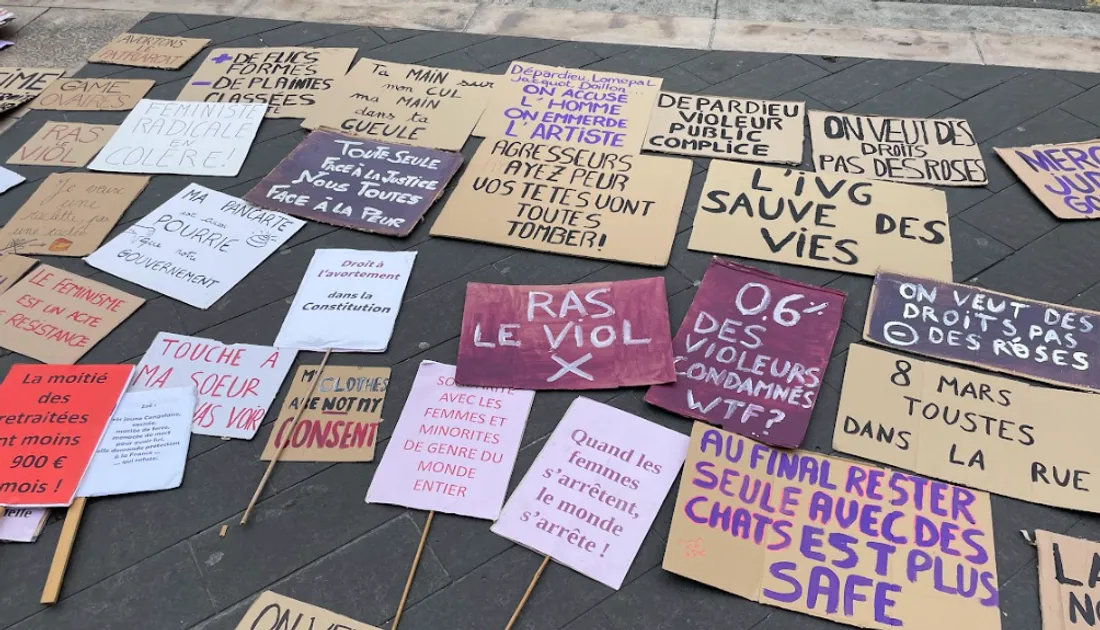 AVORTONS
LE
PATRIARCAT
+ DE FLICS
FORMÉS
- DE PLAINTES
CLASSÉES
Ta MAIN sur
mon CUL
ma MAIN
dans ta
GUEULE
Dépardieu, Lomepal
Jacquot, Doillon...
ON ACCUSE
L'HOMME
ON EMMERDE
L'ARTISTE
DEPARDIEU
VIOLEUR
PUBLIC
COMPLICE
ON VEUT DES
DROITS
PAS DES ROSES
MERC
JUD
GO
TIME
GAME
OVAIRES
RAS
LE VIOL
FEMINISTE
RADICALE
EN
COLÈRE!
TOUTE SEULE
FACE À LA JUSTICE
NOUS TOUTES
FACE À LA PEUR
AGRESSEURS
AYEZ PEUR
VOS TETES VONT
TOUTES
TOMBER!
L'IVG
SAUVE DES
VIES
Je veux
une
raclette pas
un
MA PANCARTE
est
POURRIE
notre
GOUVERNEMENT
LE FEMINISME
EST UN ACTE
DE RESISTANCE
Droit à
l'avortement
dans la
Constitution
RAS
LE VIOL
X
0.6%
DES
VIOLEURS
CONDAMNÉS
WTF?
ON VEUT DES
DROITS PAS
DES ROSES
8 MARS
TOUSTES
DANS LA RUE
TOUCHE À
MA SOEUR
PAS VOIR
La moitié
des
retraitées
ont moins
900 €
mois !
une Congolaise,
menacée de mort
elle demande protection
à la France ...
... qui refuse.
MY CLOTHES
ARE NOT MY
CONSENT
SOLIDARITÉ
AVEC LES
FEMMES ET
MINORITES
DE GENRE DU
MONDE
ENTIER
Quand les
femmes
s'arrêtent,
le monde
s'arrête !
AU FINAL RESTER
SEULE AVEC DES
CHATS EST PLUS
SAFE
ON
LA
NO